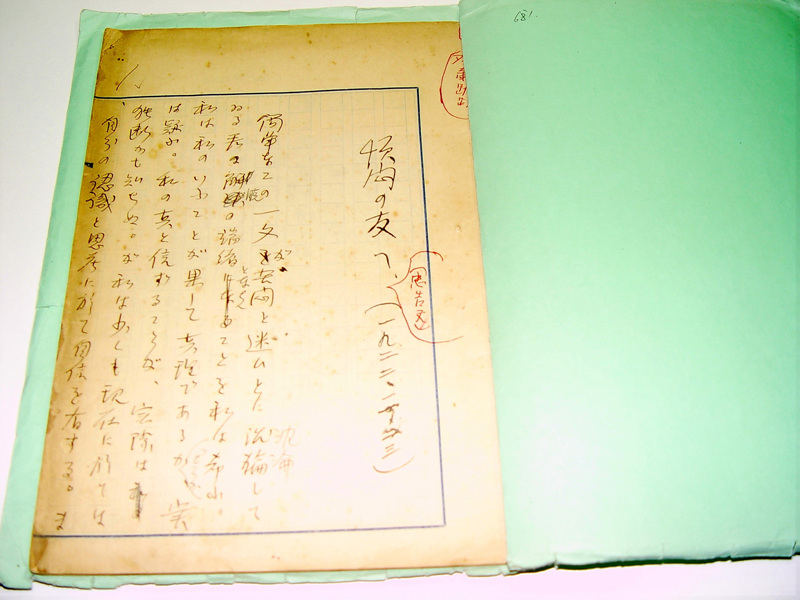 681.
煩悶の友へ、(一九二二、
忠告文
この一文が苦悶と迷ひとに沈淪して
ゐる君の解脱の端緒ともなることを私は希ふ。
私は私のいふことが果して真理であるか、実
は疑ふ。私の真と信ずることが、実際は
独断かも知らぬ。が私は少くも現在に於ては
自分の認識と思考に於て自信を有する。ま